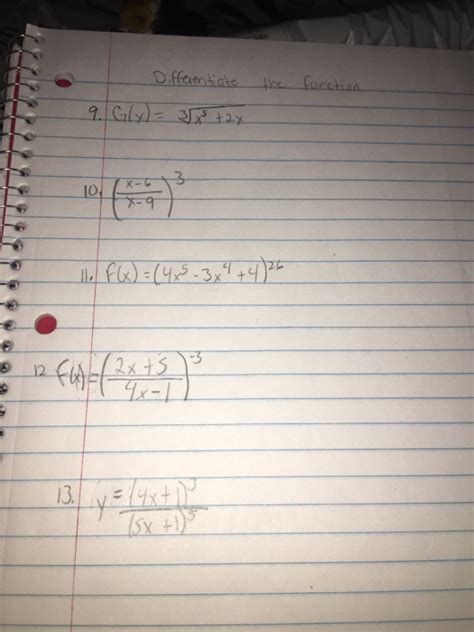 Differentiate the function
9. G(x) = ∛(x⁵ + 2x)
10. ((x-6)/(x-9))³
11. f(x) = (4x⁵ - 3x⁴ + 4)²⁶
12 f(x) = ((2x+5)/(4x-1))⁻³
13. y = (4x+1)³/(5x+1)⁵